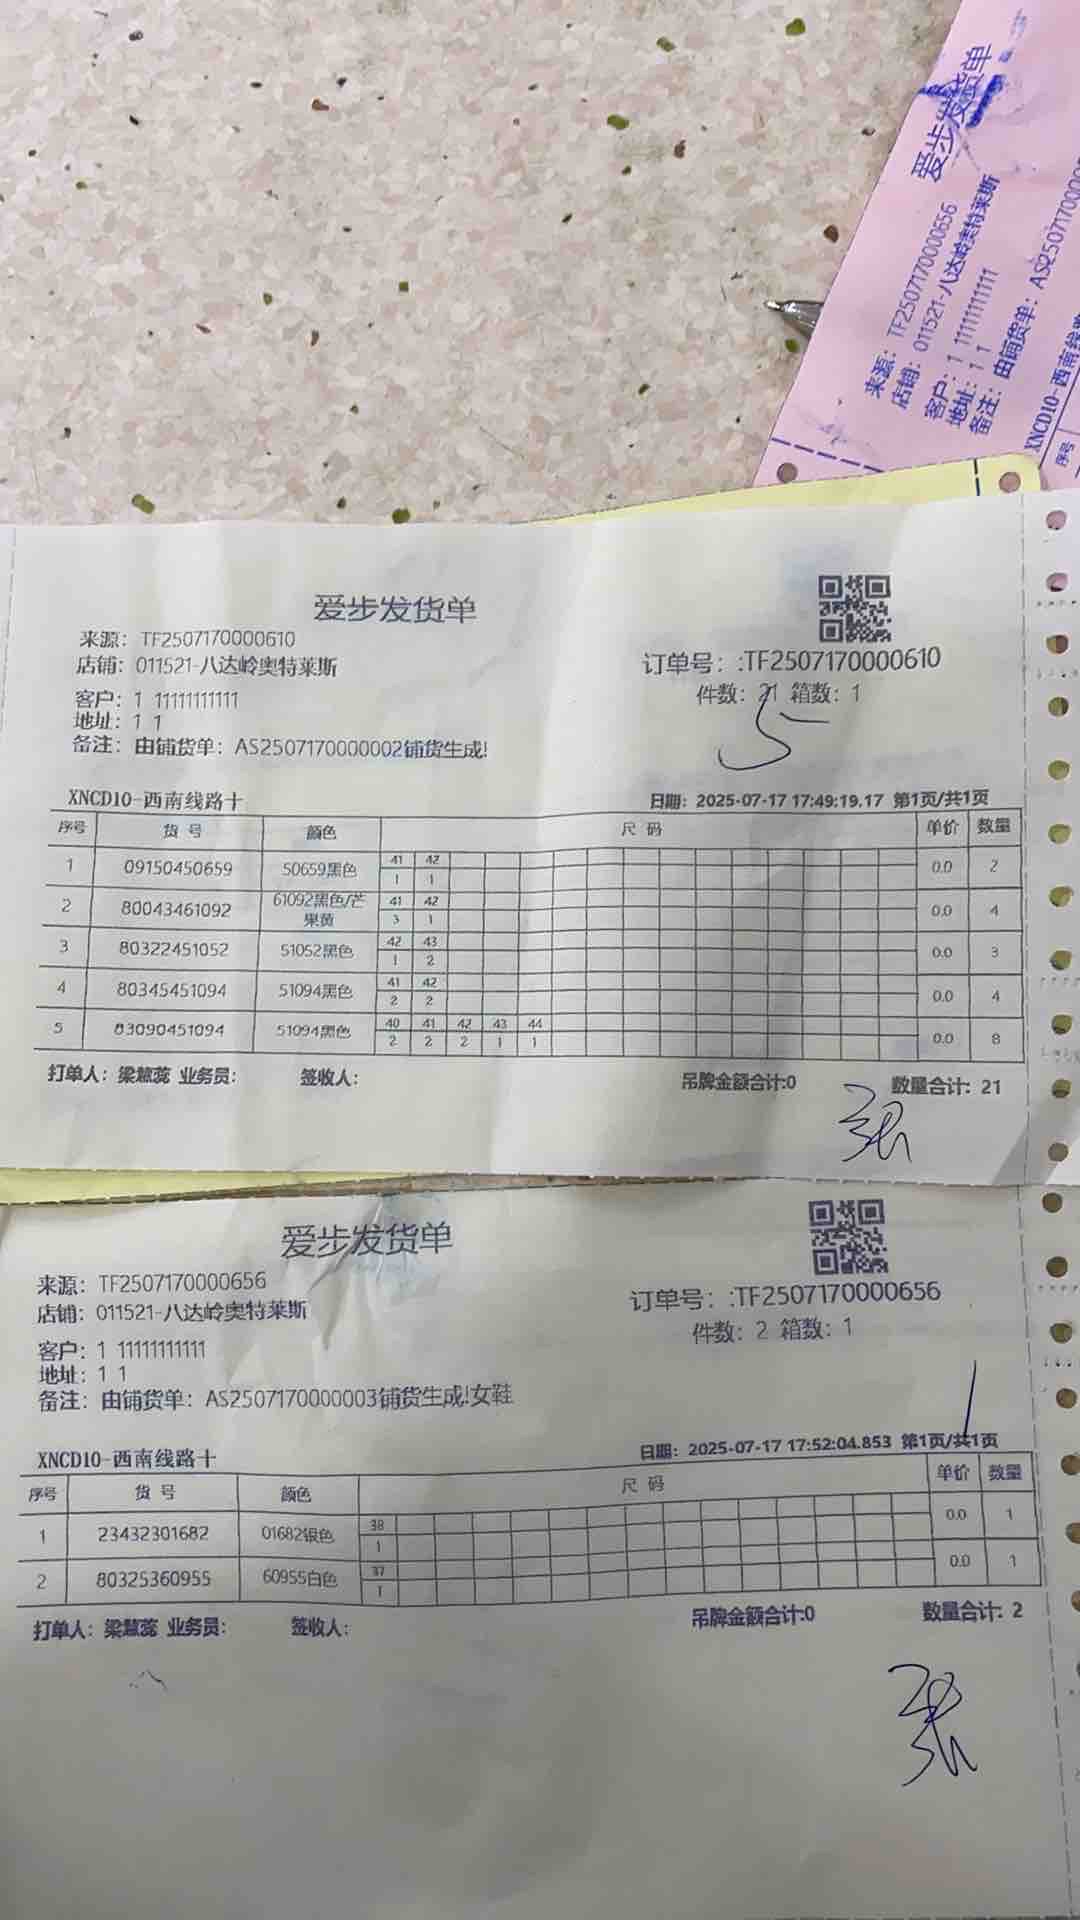 爱步发货单
来源：TF2507170000656
店铺：011521-八达岭奥特莱斯
客户：1 11111111111
地址：1 1
备注：由铺货单：AS250717000
XNCD10-西南线路
序号
爱步发货单
来源：TF2507170000610
店铺：011521-八达岭奥特莱斯
订单号：:TF2507170000610
客户：1 11111111111
件数：21 箱数：1
地址：1 1
5
备注：由铺货单：AS2507170000002铺货生成!
XNCD10-西南线路十
日期：2025-07-17 17:49:19.17 第1页/共1页
序号 货号 颜色 尺码 单价 数量
41 42
1 09150450659 50659黑色 0.0 2
1 1
41 42
2 80043461092 61092黑色/芒果黄 0.0 4
3 1
42 43
3 80322451052 51052黑色 0.0 3
1 2
41 42
4 80345451094 51094黑色 0.0 4
2 2
40 41 42 43 44
5 83090451094 51094黑色 0.0 8
2 2 2 1 1
打单人：梁慧蕊 业务员： 签收人： 吊牌金额合计:0 数量合计：21
张
爱步发货单
来源：TF2507170000656
店铺：011521-八达岭奥特莱斯
订单号：:TF2507170000656
客户：1 11111111111
件数：2 箱数：1
地址：1 1
备注：由铺货单：AS2507170000003铺货生成!女鞋
1
XNCD10-西南线路十
日期：2025-07-17 17:52:04.853 第1页/共1页
序号 货号 颜色 尺码 单价 数量
38
1 23432301682 01682银色 0.0 1
1
37
2 80325360955 60955白色 0.0 1
1
打单人：梁慧蕊 业务员： 签收人： 吊牌金额合计:0 数量合计: 2